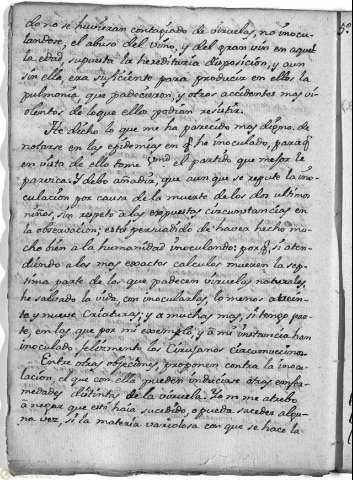 do no se huvieran contagiado de viruelas, no inocu-
landose, el abuso del vino, y del gran vin en aque-
la edad, supuesta la hereditaria disposicion, y aun
sin ella, era suficiente para producir en ellos la
pulmonia, que padecieron, y otros accidentes mas vi-
olentos de loque ellos podian resistir.
He dicho lo que me ha parecido mas digno de
notarse en las epidemias en q̃ he inoculado, para q̃
en vista de ello tome Vmd el partido que mejor le
parezca. Y debo añadir, que aun que se repute la ino-
culacion por causa de la muerte de los dos ultimos
niños, sin respeto á las expuestas circunstancias en
la observacion; estoi persuadido de haver hecho mu-
cho bien a la humanidad inoculando: por q̃ si aten-
diendo a los mas exactos calculos mueren la sep-
tima parte de los que padecen viruelas naturales,
he salvado la vida, con inocularlas, lo menos a
y nueve Criaturas; y a muchas mas, si tengo par-
te, en las que por mi exemplo, y á mi instancia han
inoculado felizmente los Cirujanos circumvecinos.
Entre otras objeciones, proponen contra la inocu-
lacion el que con ella pueden inducirse otras enfer-
medades distintas de la viruela. Yo no me atrebo
a negar que esto haia sucedido, o pueda suceder algu-
na vez, si la materia variolosa con que se hace la